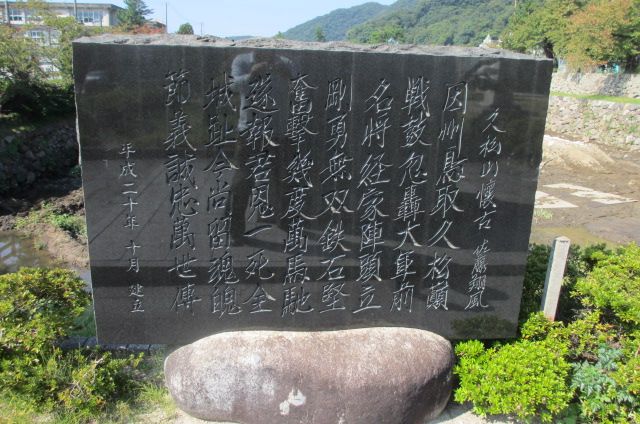 久松山懐古 佐藤翔風
因州鳥取久松巓
戦鼓忽轟大軍前
名将経家陣頭立
剛勇無双鉄石堅
奮撃幾度萬馬馳
報君恩一死全
城趾今尚留魂魄
節義誠忠萬世傳
平成二十年十月建立